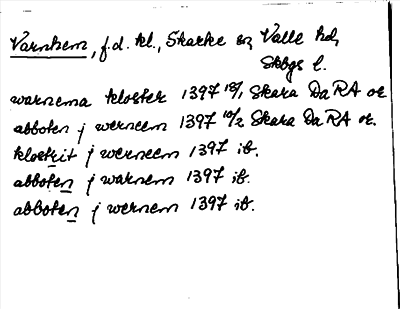 Varnhem, f.d. kl., Skarke sn, Valle hd,
Skbgs l.
warnema kloster 1397 18/1 Skara DaRA or.
abboten j werneem 1397 10/2 Skara DaRA or.
klostrit j werneem 1397 ib.
abboten j warnem 1397 ib.
abboten j wernem 1397 ib.